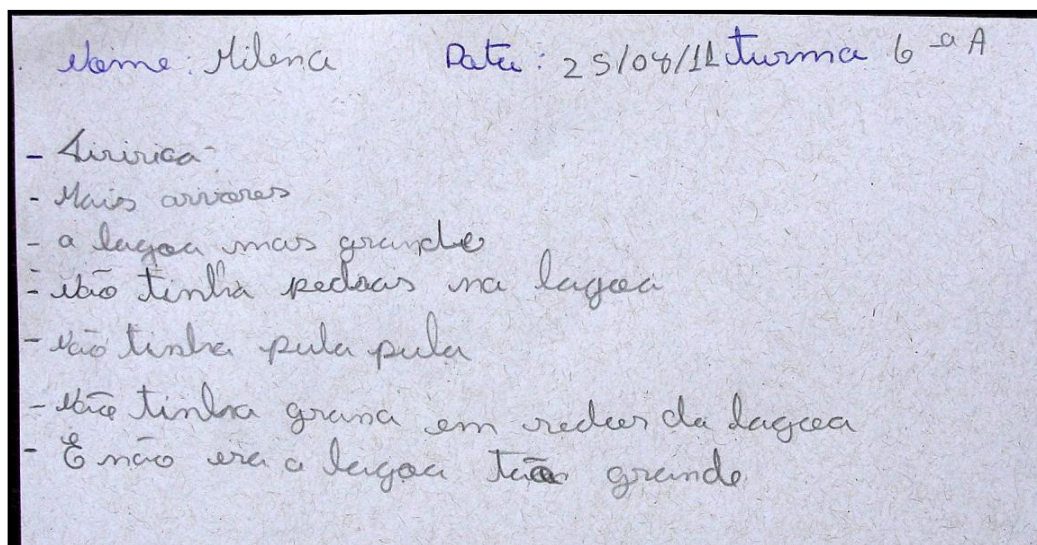 Nome: Milena Data: 25/08/11 turma 6ª A
- Tiririca
- Mais arvores
- a lagoa mas grande
- Não tinha pedras na lagoa
- Não tinha pula pula
- Não tinha grama em redor da lagoa
- E não era a lagoa tão grande